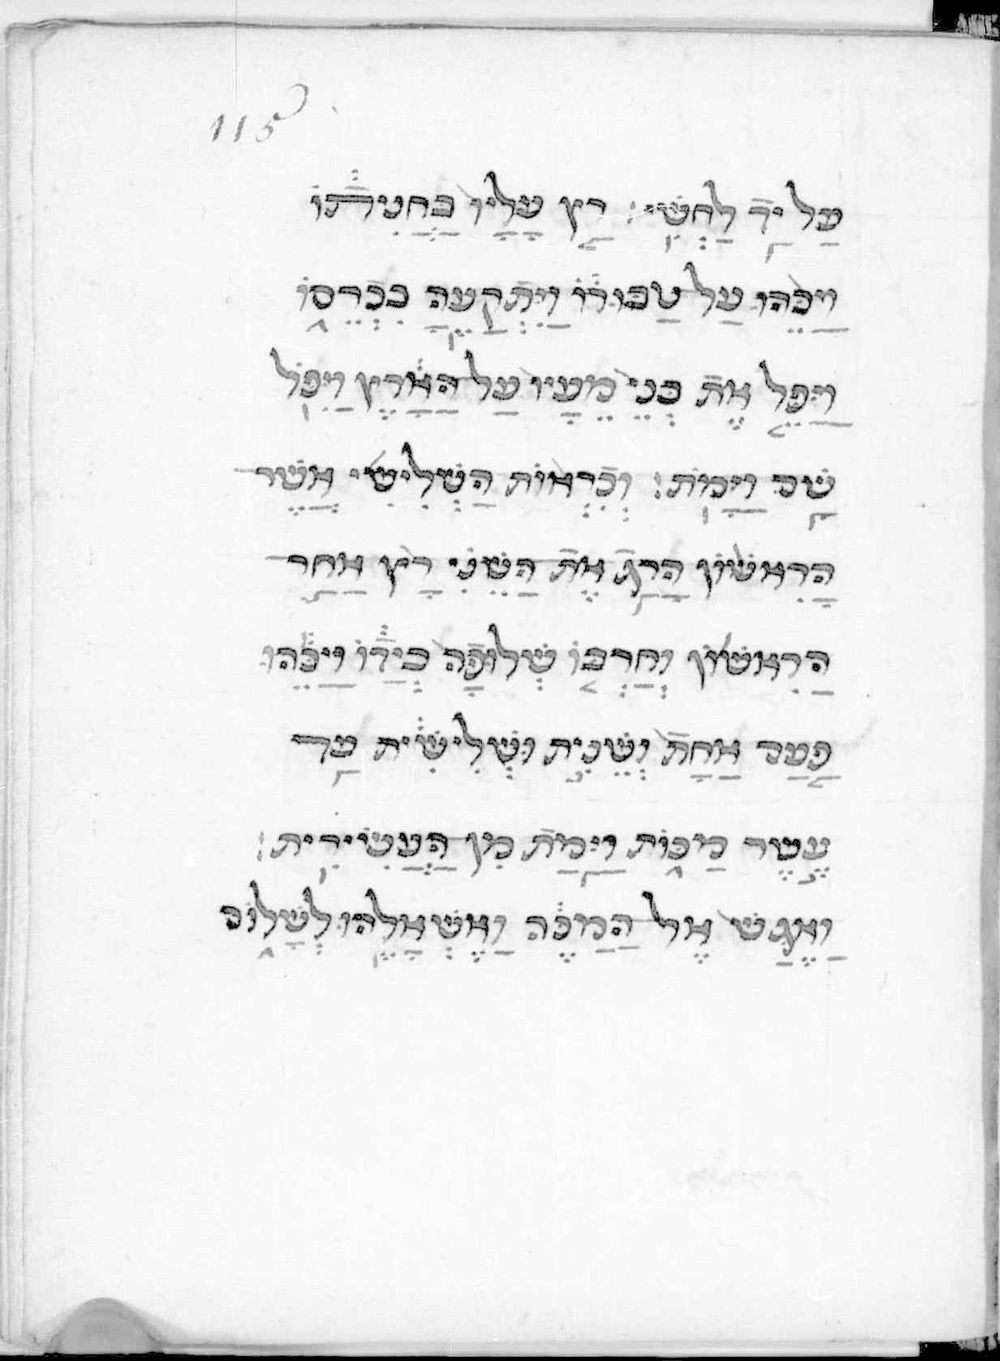 115
עַל יָד לַחְשִׁי׃ רָץ עָלָיו בַּחֲנִיתוֹ
וַיַּכֵּהוּ עַל טַבּוּרוֹ וַיִּתְקָעֶהָ בִּכְרֵסוֹ
וַיַּפֵּל אֶת בְּנֵי מֵעָיו עַל הָאָרֶץ וַיִּפֹּל
שָׁם וַיָּמָת׃ וְכִרְאוֹת הַשְּׁלִישִׁי אֲשֶׁר
הָרִאשׁוֹן הָרַג אֶת הַשֵּׁנִי רָץ אַחַר
הָרִאשׁוֹן וְחַרְבּוֹ שְׁלוּפָה בְיָדוֹ וַיַּכֵּהוּ
פַּעַם אַחַת וְשֵׁנִית וּשְׁלִישִׁית עַד
עֶשֶׂר מַכּוֹת וַיָּמָת מִן הָעֲשִׂירִית׃
וָאֶגַּשׁ אֶל הַמֻּכֶּה וָאֶשְׁאָלֵהוּ לְשָׁלוֹם